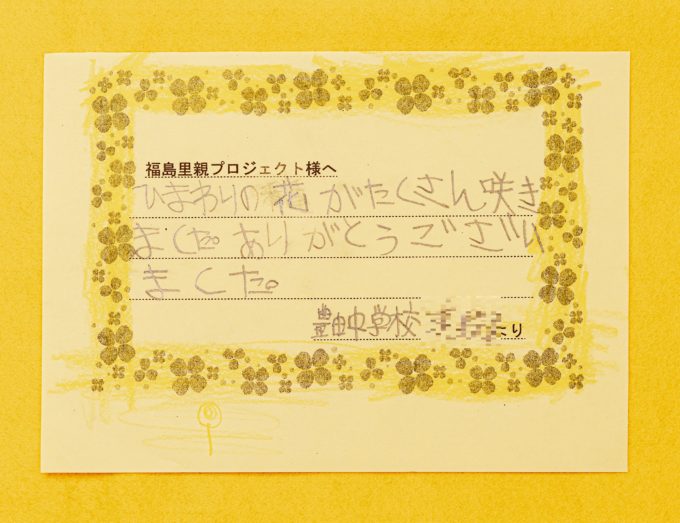 福島里親プロジェクト様へ
ひまわりの花がたくさん咲き
ました。ありがとうござい
ました。
豊田中学校 より